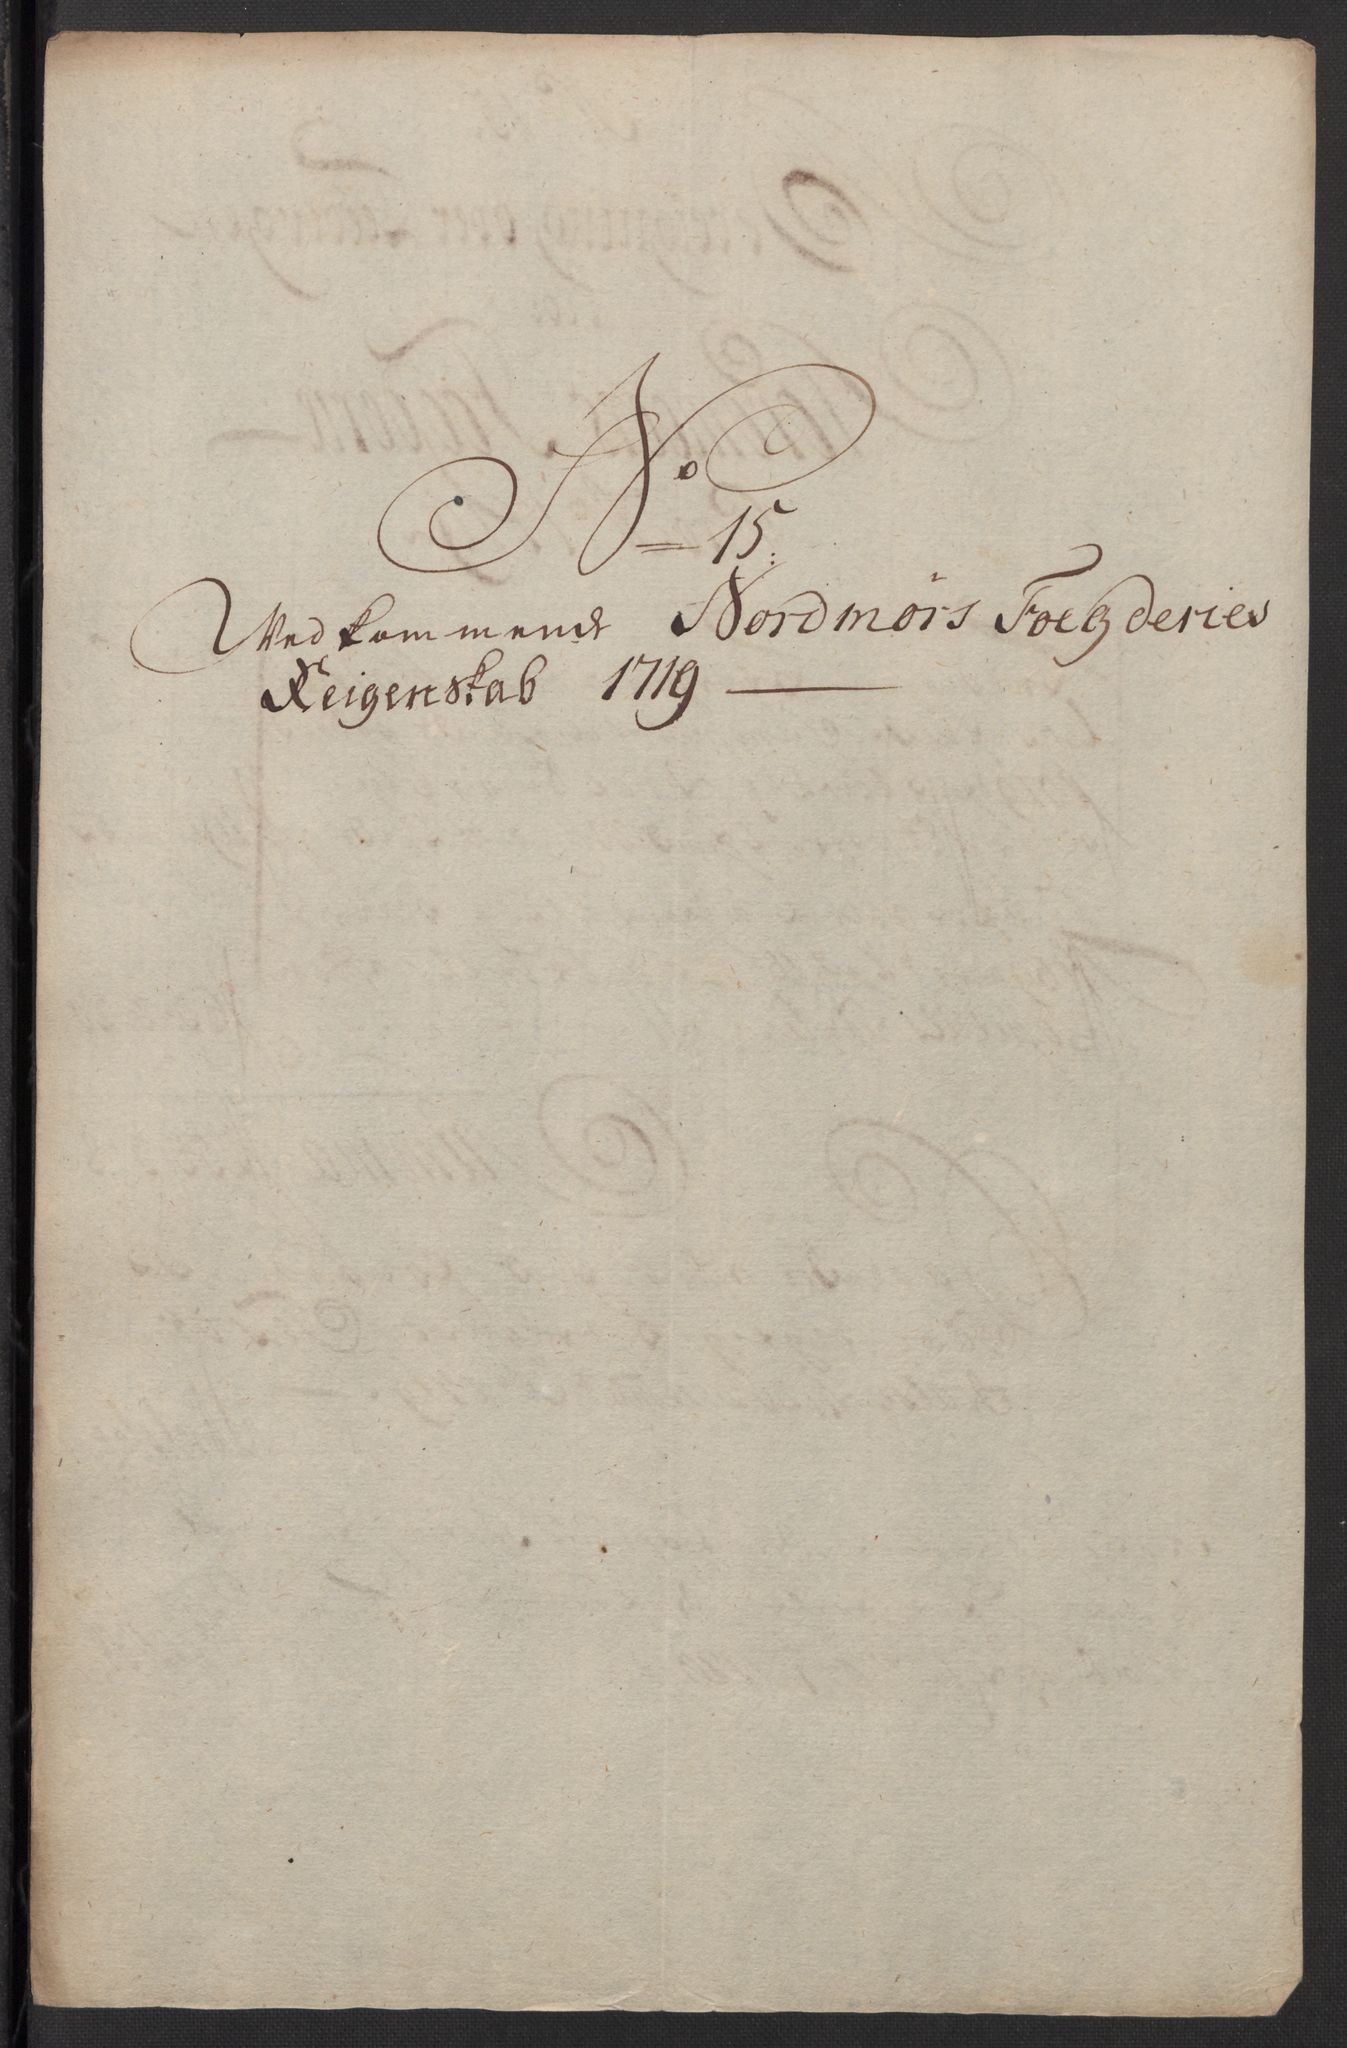 No
15.
Vedkommende Nordmørs Foegderies
Reigenskab 1719